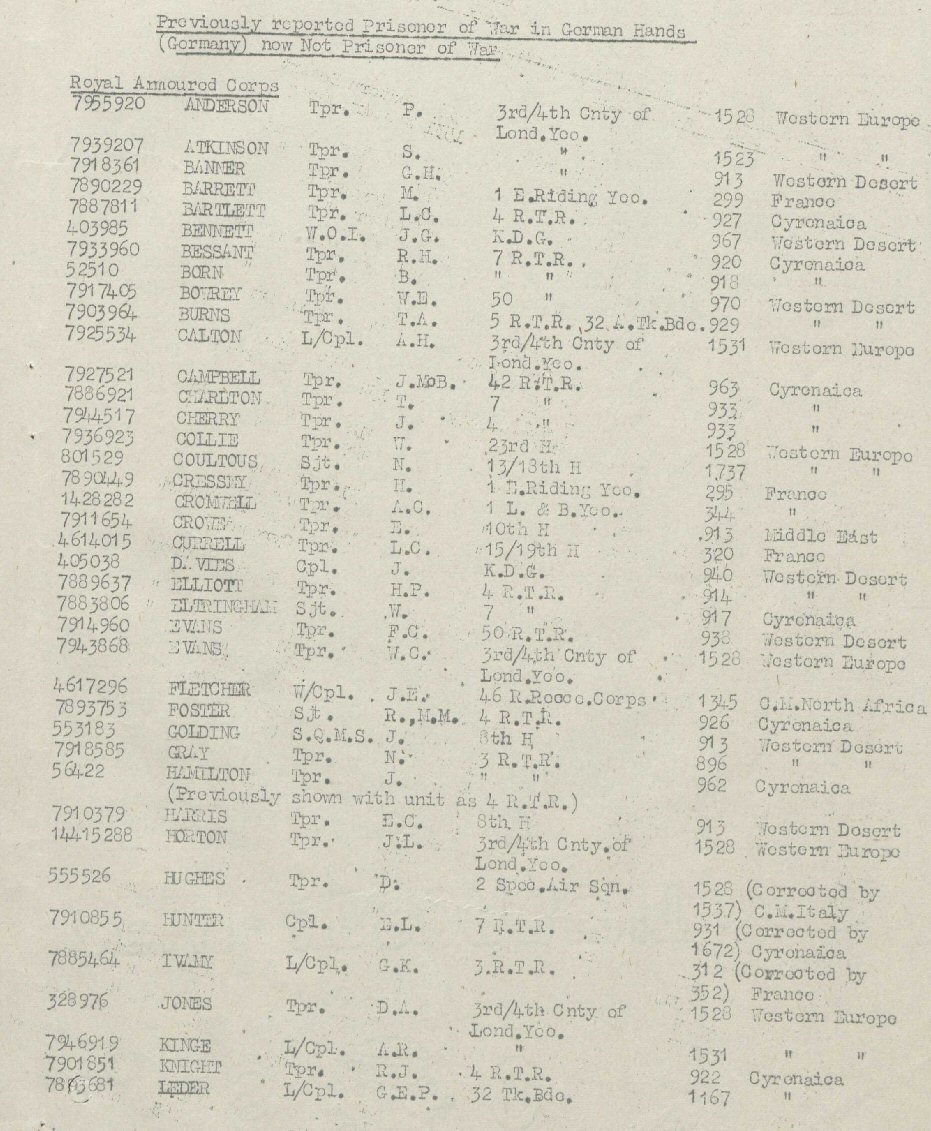 Previously reported Prisoner of War in German Hands
(Germany) now Not Prisoner of War
Royal Armoured Corps
7955920 ANDERSON Tpr. P. 3rd/4th Cnty of 1528 Western Europe
Lond.Yeo.
7939207 ATKINSON Tpr. S. " 1523 " "
7918361 BANNER Tpr. G.H. " 913 Western Desert
7890229 BARRETT Tpr. M. 1 E.Riding Yeo. 299 France
7887811 BARTLETT Tpr. L.C. 4 R.T.R. 927 Cyrenaica
403985 BENNETT W.O.I. J.G. K.D.G. 967 Western Desert
7933960 BESSANT Tpr. R.H. 7 R.T.R. 920 Cyrenaica
52510 BORN Tpr. B. " " 918 "
7917405 BOVREY Tpr. W.E. 50 " 970 Western Desert
7903964 BURNS Tpr. T.A. 5 R.T.R. 32 A.Tk.Bde. 929 " "
7925534 CALTON L/Cpl. A.H. 3rd/4th Cnty of 1531 Western Europe
Lond.Yeo.
7927521 CAMPBELL Tpr. J.McB. 42 R.T.R. 963 Cyrenaica
7886921 CHARLTON Tpr. T. 7 " 933 "
7944517 CHERRY Tpr. J. 4 " 933 "
7936923 COLLIE Tpr. W. 23rd H 1528 Western Europe
801529 COULTOUS Sjt. N. 13/18th H 1737 " "
7890449 CRESSEY Tpr. H. 1 E.Riding Yeo. 295 France
1428282 CROMWELL Tpr. A.C. 1 L. & B.Yeo. 344 "
7911654 CROWE Tpr. E. 10th H 913 Middle East
4614015 CURRELL Tpr. L.C. 15/19th H 320 France
405038 DAVIES Cpl. J. K.D.G. 940 Western Desert
7889637 ELLIOTT Tpr. H.P. 4 R.T.R. 914 " "
7883806 ELTRINGHAM Sjt. W. 7 " 917 Cyrenaica
7914960 EVANS Tpr. F.C. 50 R.T.R. 938 Western Desert
7943868 EVANS Tpr. W.C. 3rd/4th Cnty of 1528 Western Europe
Lond.Yeo.
4617296 FLETCHER W/Cpl. J.E. 46 R.Recce.Corps 1345 C.M.North Africa
7893753 FOSTER Sjt. R.,M.M. 4 R.T.R. 926 Cyrenaica
553183 GOLDING S.Q.M.S. J. 8th H 913 Western Desert
7918585 GRAY Tpr. N. 3 R.T.R. 896 " "
56422 HAMILTON Tpr. J. " " 962 Cyrenaica
(Previously shown with unit as 4 R.T.R.)
7910379 HARRIS Tpr. E.C. 8th H 913 Western Desert
14415288 HORTON Tpr. J.L. 3rd/4th Cnty.of 1528 Western Europe
Lond.Yeo.
555526 HUGHES Tpr. D. 2 Spec.Air Sqn. 1528 (Corrected by
1537) C.M.Italy
7910855 HUNTER Cpl. E.L. 7 R.T.R. 931 (Corrected by
1672) Cyrenaica
7885464 IVAMY L/Cpl. G.K. 3.R.T.R. 312 (Corrected by
352) France
328976 JONES Tpr. D.A. 3rd/4th Cnty of 1528 Western Europe
Lond.Yeo.
7946919 KINGE L/Cpl. A.R. " 1531 " "
7901851 KNIGHT Tpr. R.J. 4 R.T.R. 922 Cyrenaica
LEDER L/Cpl. G.E.P. 32 Tk.Bde. 1167 "